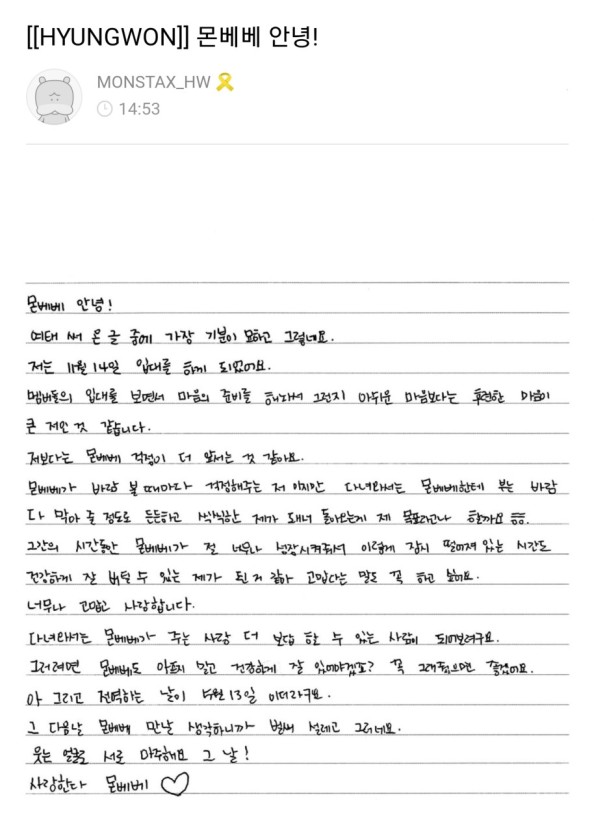 [[HYUNGWON]] 몬베베 안녕!
MONSTAX_HW
14:53
몬베베 안녕!
여태 써 온 글 중에 가장 기분이 묘하고 그렇네요.
저는 11월 14일 입대를 하게 되었어요.
멤버들의 입대를 보면서 마음의 준비를 해놔서 그런지 아쉬운 마음보다는 후련한 마음이
큰 저인 것 같습니다.
저보다는 몬베베 걱정이 더 앞서는 것 같아요.
몬베베가 바람 불 때마다 걱정해주는 저 이지만 다녀와서는 몬베베한테 부는 바람
다 막아 줄 정도로 든든하고 씩씩한 제가 돼서 돌아오는게 제 목표라고나 할까요 ㅎㅎ.
그간의 시간동안 몬베베가 절 너무나 성장시켜줘서 이렇게 잠시 떨어져 있는 시간도
건강하게 잘 버틸 수 있는 제가 된 거 같아 고맙다는 말도 꼭 하고 싶어요.
너무나 고맙고 사랑합니다.
다녀와서는 몬베베가 주는 사랑 더 보답 할 수 있는 사람이 되어보려구요.
그러려면 몬베베도 아프지 말고 건강하게 잘 있어야겠죠? 꼭 그래줬으면 좋겠어요.
아 그리고 전역하는 날이 5월 13일 이더라구요.
그 다음날 몬베베 만날 생각하니까 벌써 설레고 그러네요.
웃는 얼굴로 서로 마주해요 그 날!
사랑한다 몬베베 ♡